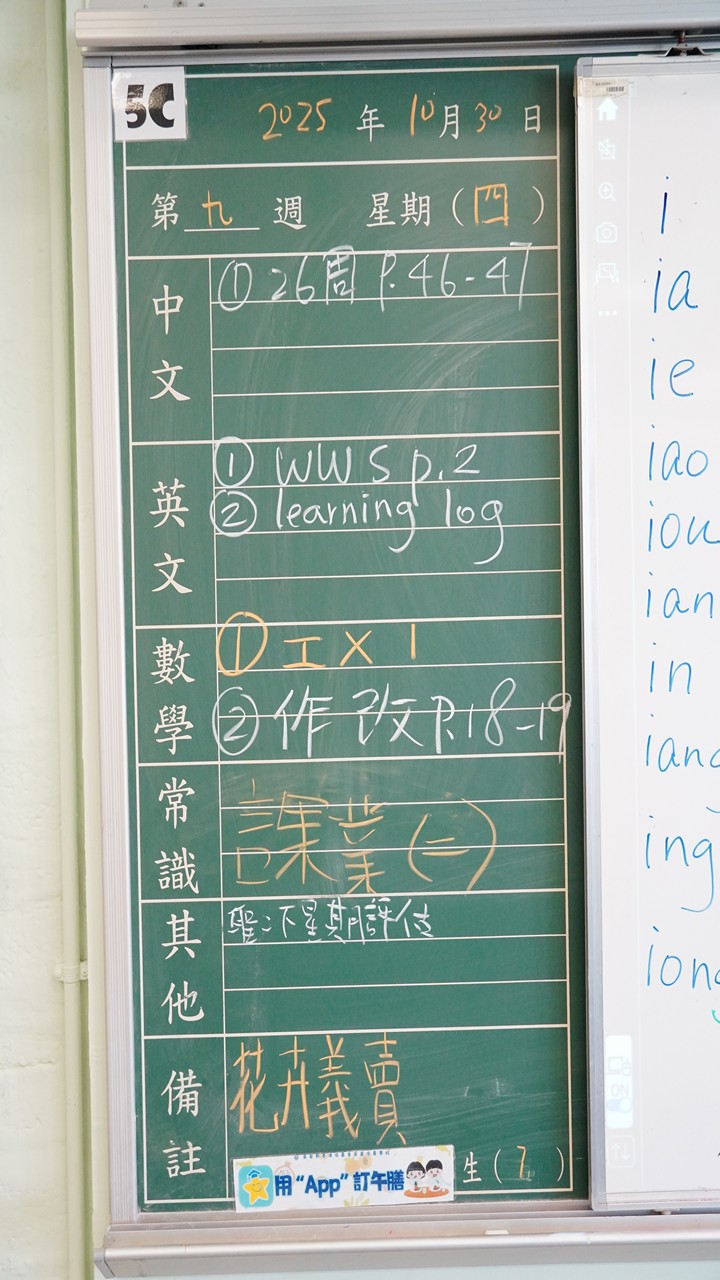 5C
2025 年 10 月 30 日
第 九 週 星期 ( 四 )
中文
① 26周 P.46-47
英文
① WWS p.2
② learning log
數學
① 工 X 1
② 作 改 P.18-19
常識
課業 (二)
其他
聖:下星期評估
備註
花卉義賣
用“App”訂午膳
生 ( 7 )
i
ia
ie
iao
iou
ian
in
ing
ON